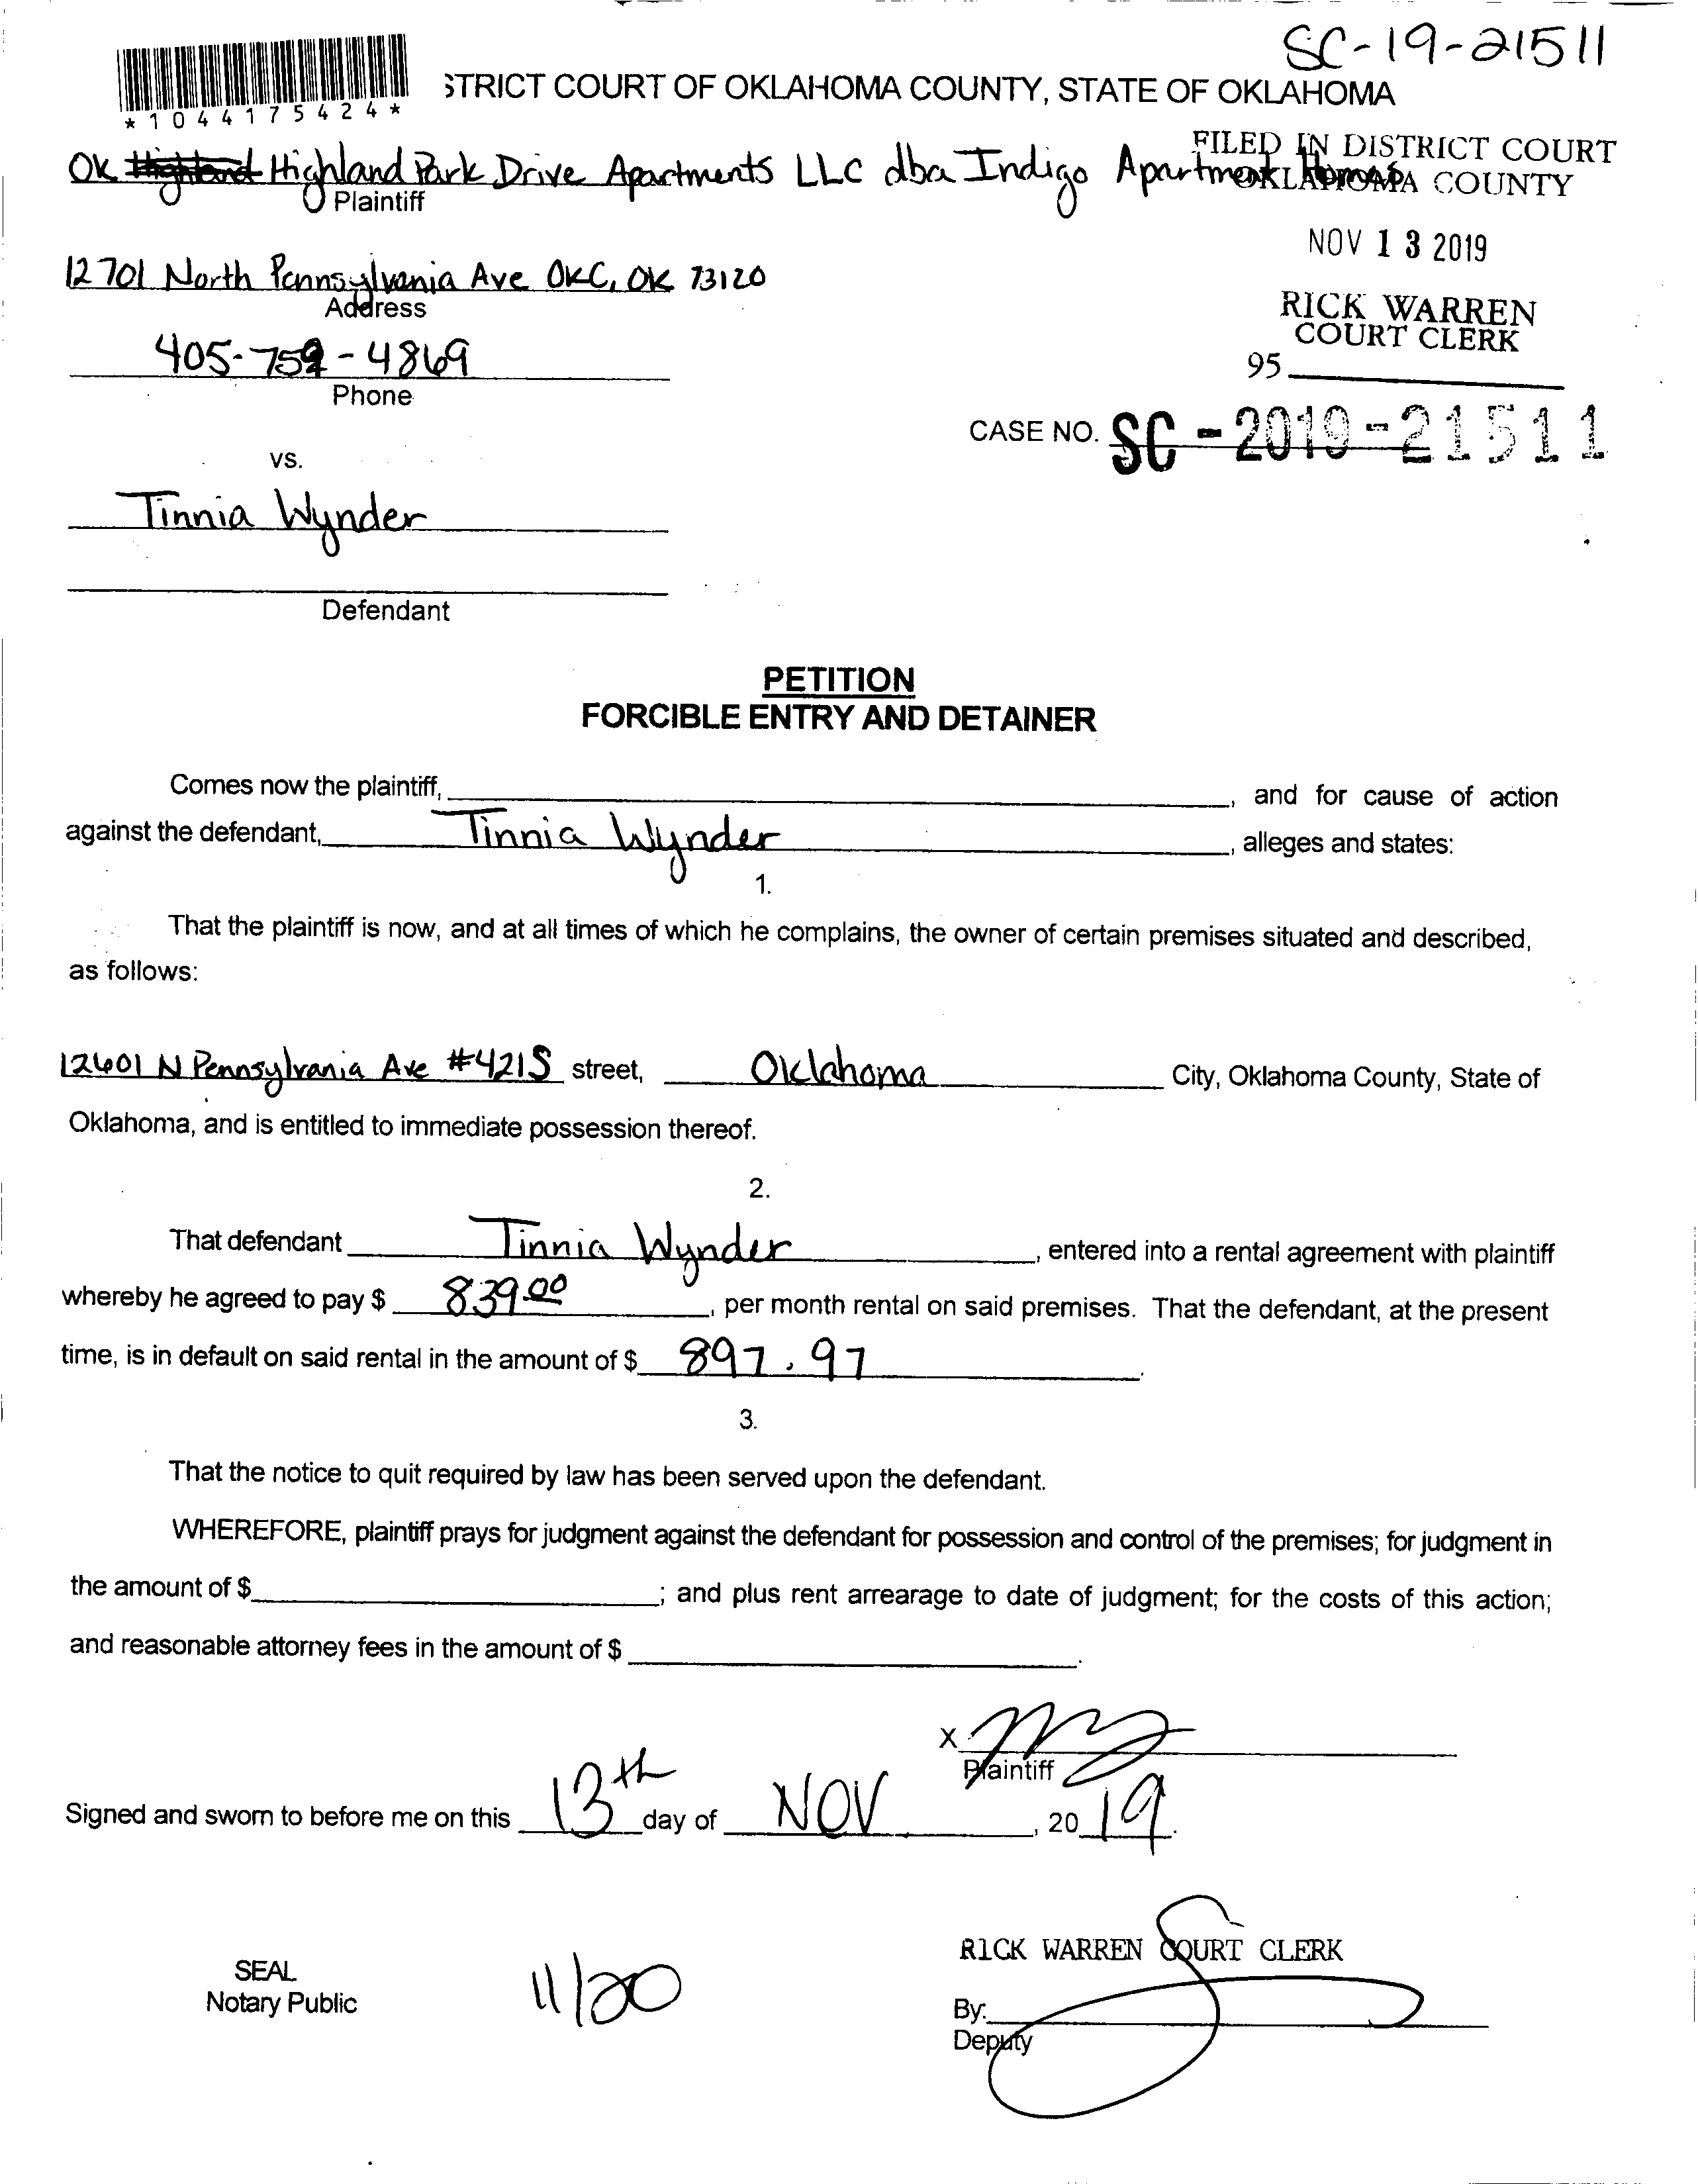 SC-19-21511
*1044175424*
STRICT COURT OF OKLAHOMA COUNTY, STATE OF OKLAHOMA
FILED IN DISTRICT COURT
OKLAHOMA COUNTY
OK Highland Highland Park Drive Apartments LLC dba Indigo Apartment Homes
Plaintiff
NOV 13 2019
12701 North Pennsylvania Ave OKC, OK 73120
Address
RICK WARREN
COURT CLERK
405-759-4869
Phone
95
CASE NO. SC-2019-21511
VS.
Tinnia Wynder
Defendant
PETITION
FORCIBLE ENTRY AND DETAINER
Comes now the plaintiff, , and for cause of action
against the defendant, Tinnia Wynder , alleges and states:
1.
That the plaintiff is now, and at all times of which he complains, the owner of certain premises situated and described,
as follows:
12601 N Pennsylvania Ave #421S street, Oklahoma City, Oklahoma County, State of
Oklahoma, and is entitled to immediate possession thereof.
2.
That defendant Tinnia Wynder , entered into a rental agreement with plaintiff
whereby he agreed to pay $ 839.00 , per month rental on said premises. That the defendant, at the present
time, is in default on said rental in the amount of $ 897.97 .
3.
That the notice to quit required by law has been served upon the defendant.
WHEREFORE, plaintiff prays for judgment against the defendant for possession and control of the premises; for judgment in
the amount of $ ; and plus rent arrearage to date of judgment; for the costs of this action;
and reasonable attorney fees in the amount of $ .
X
Plaintiff
Signed and sworn to before me on this 13th day of NOV , 20 19.
RICK WARREN COURT CLERK
SEAL
Notary Public
11/20
By:
Deputy